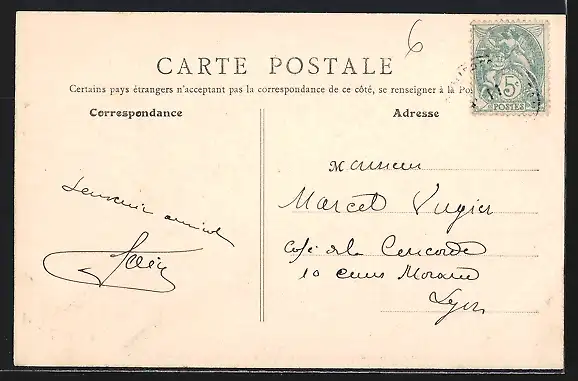 6
CARTE POSTALE
Certains pays étrangers n'acceptant pas la correspondance de ce côté, se renseigner à la Pos
Correspondance
Adresse
5
POSTES
Monsieur
Marcel Vugier
Café de la Concorde
10 cours Morand
Lyon
Souvenir amical